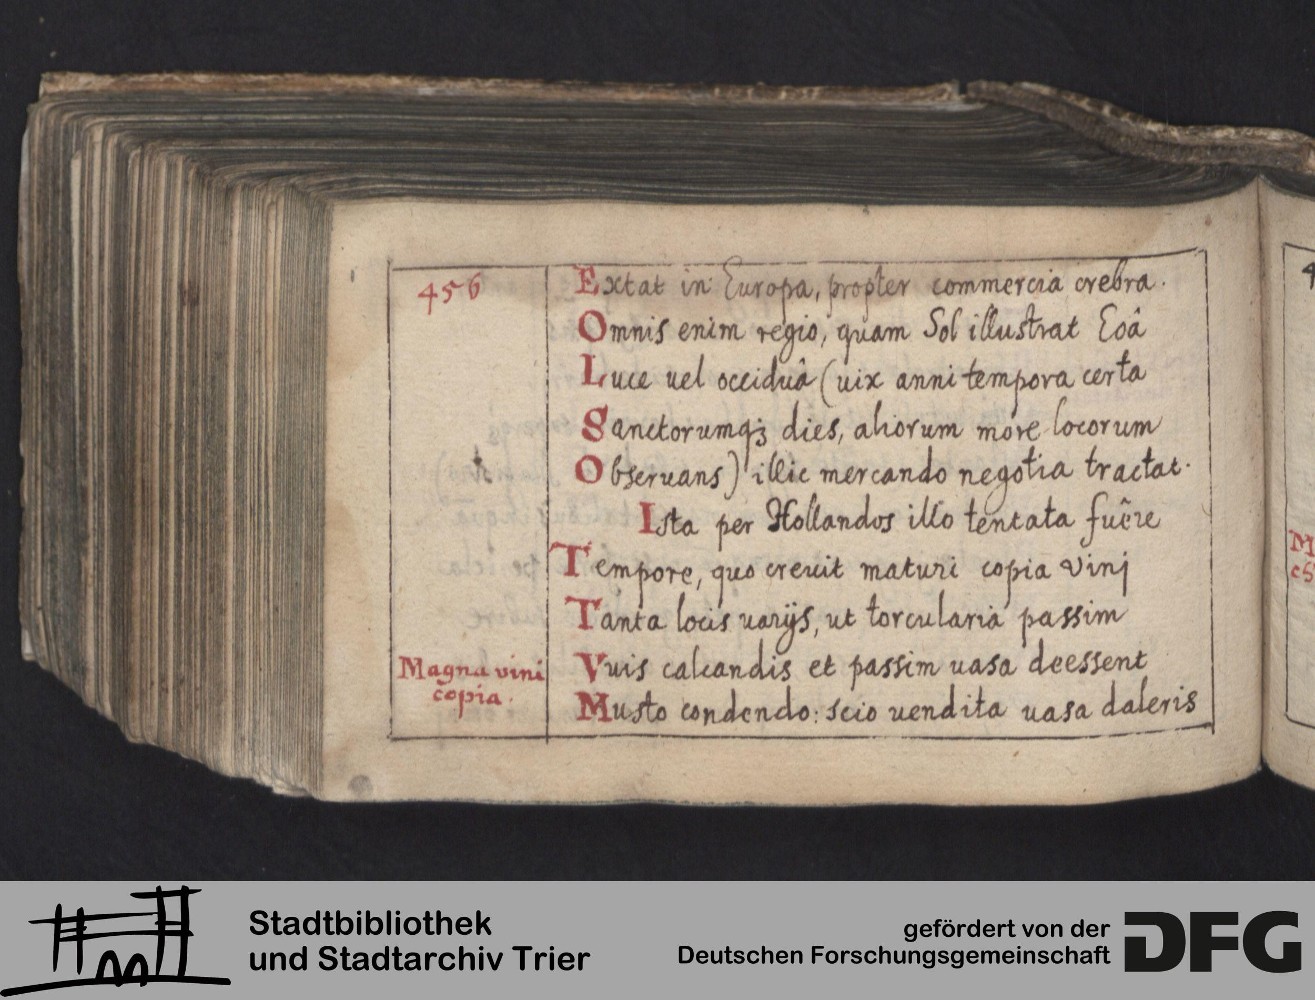 456
Extat in Europa, propter commercia crebra.
Omnis enim regio, quam Sol illustrat Eoâ
Luce uel occiduâ (uix anni tempora certa
Sanctorumqꝫ dies, aliorum more locorum
Obseruans) illic mercando negotia tractat.
Ista per Hollandos illo tentata fuêre
Tempore, quo creuit maturi copia Vinj
Tanta locis uarijs, ut torcularia passim
Vuis calcandis et passim uasa deessent
Magna vini
copia.
Musto condendo: scio uendita uasa daleris
4
M
cs
Stadtbibliothek
und Stadtarchiv Trier
gefördert von der
Deutschen Forschungsgemeinschaft
DFG